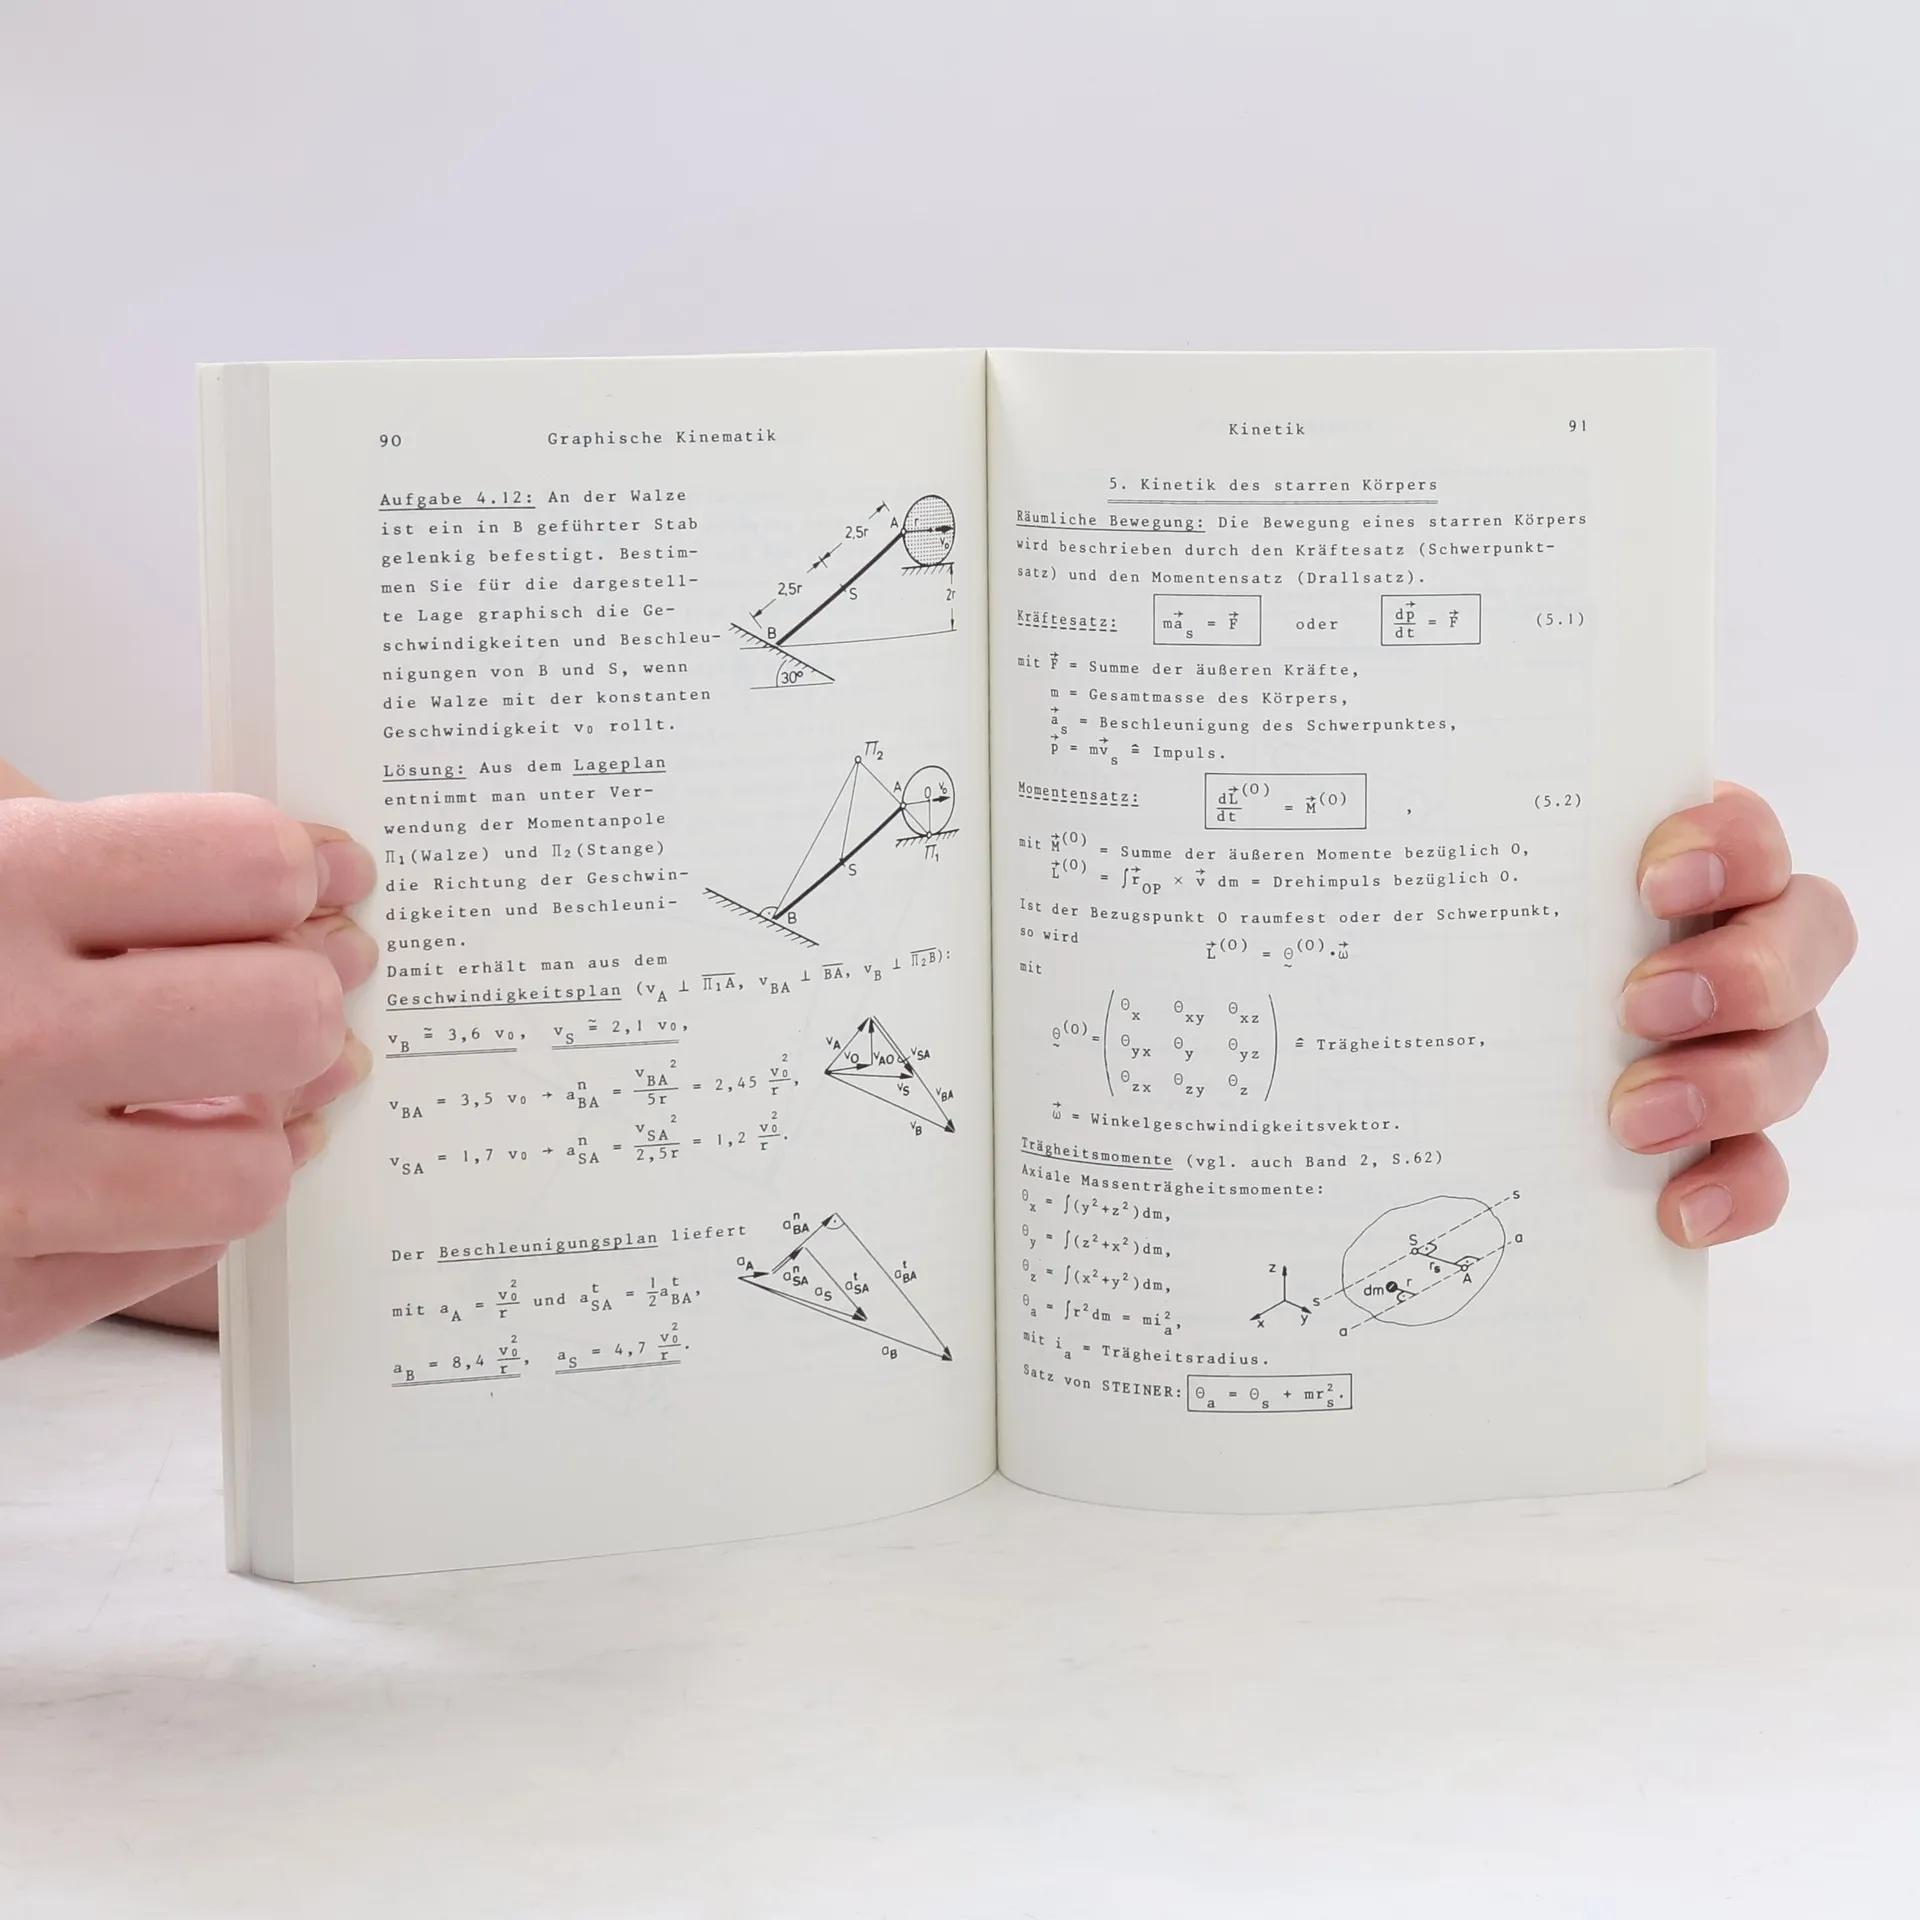 90 Graphische Kinematik
Aufgabe 4.12: An der Walze
ist ein in B geführter Stab
gelenkig befestigt. Bestim-
men Sie für die dargestell-
te Lage graphisch die Ge-
schwindigkeiten und Beschleu-
nigungen von B und S, wenn
die Walze mit der konstanten
Geschwindigkeit v₀ rollt.
A r v₀
2,5r
2,5r
S
2r
B
30°
Lösung: Aus dem Lageplan
entnimmt man unter Ver-
wendung der Momentanpole
Π₁(Walze) und Π₂(Stange)
die Richtung der Geschwin-
digkeiten und Beschleuni-
gungen.
Π₂
A O v₀
Π₁
S
B
Damit erhält man aus dem
Geschwindigkeitsplan (v_A ⊥ \overline{Π₁A}, v_BA ⊥ \overline{BA}, v_B ⊥ \overline{Π₂B}):
v_B ≅ 3,6 v₀, v_S ≅ 2,1 v₀,
v_BA = 3,5 v₀ → a_BA^n = v_BA²/5r = 2,45 v₀²/r,
v_SA = 1,7 v₀ → a_SA^n = v_SA²/2,5r = 1,2 v₀²/r.
v_A v_O v_AO v_SA
v_S v_BA
v_B
Der Beschleunigungsplan liefert
mit a_A = v₀²/r und a_SA^t = 1/2 a_BA^t,
a_B = 8,4 v₀²/r, a_S = 4,7 v₀²/r.
a_BA^n
a_A a_SA^n a_S a_SA^t a_BA^t
a_B
Kinetik 91
5. Kinetik des starren Körpers
Räumliche Bewegung: Die Bewegung eines starren Körpers
wird beschrieben durch den Kräftesatz (Schwerpunkt-
satz) und den Momentensatz (Drallsatz).
Kräftesatz: m\vec{a}_s = \vec{F} oder d\vec{p}/dt = \vec{F} (5.1)
mit \vec{F} = Summe der äußeren Kräfte,
m = Gesamtmasse des Körpers,
\vec{a}_s = Beschleunigung des Schwerpunktes,
\vec{p} = m\vec{v}_s ≙ Impuls.
Momentensatz: d\vec{L}^(O)/dt = \vec{M}^(O) , (5.2)
mit \vec{M}^(O) = Summe der äußeren Momente bezüglich O,
\vec{L}^(O) = ∫\vec{r}_OP × \vec{v} dm = Drehimpuls bezüglich O.
Ist der Bezugspunkt O raumfest oder der Schwerpunkt,
so wird
\vec{L}^(O) = Θ^(O)·\vec{ω}
mit
Θ_x Θ_xy Θ_xz
Θ^(O) = Θ_yx Θ_y Θ_yz ≙ Trägheitstensor,
Θ_zx Θ_zy Θ_z
\vec{ω} = Winkelgeschwindigkeitsvektor.
Trägheitsmomente (vgl. auch Band 2, S.62)
Axiale Massenträgheitsmomente:
Θ_x = ∫(y²+z²)dm,
Θ_y = ∫(z²+x²)dm,
Θ_z = ∫(x²+y²)dm,
Θ_a = ∫r²dm = mi_a²,
mit i_a = Trägheitsradius.
Satz von STEINER: Θ_a = Θ_s + mr_s².
s
S a
z r_s A
dm r
s
x y
a